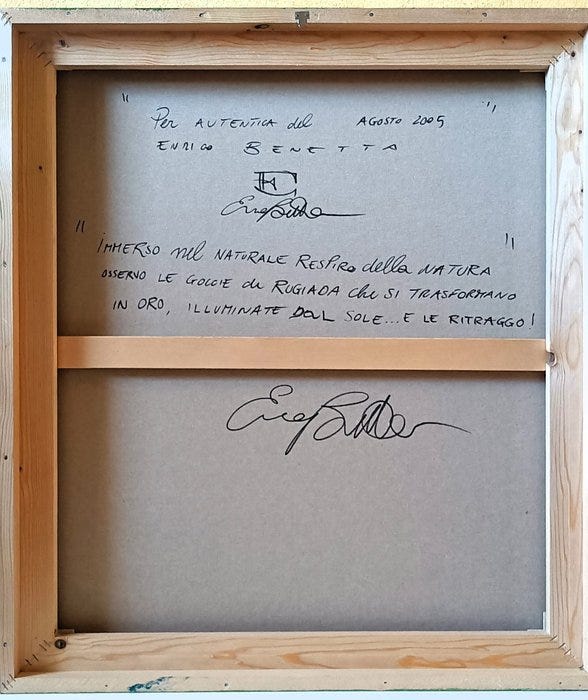 " Per AUTENTICA del AGOSTO 2005 "
ENRICO BENETTA
" IMMERSO nel NATURALE RESPIRO della NATURA "
OSSERVO LE GOCCIE di RUGIADA che SI TRASFORMANO
IN ORO, ILLUMINATE DAL SOLE... E LE RITRAGGO!